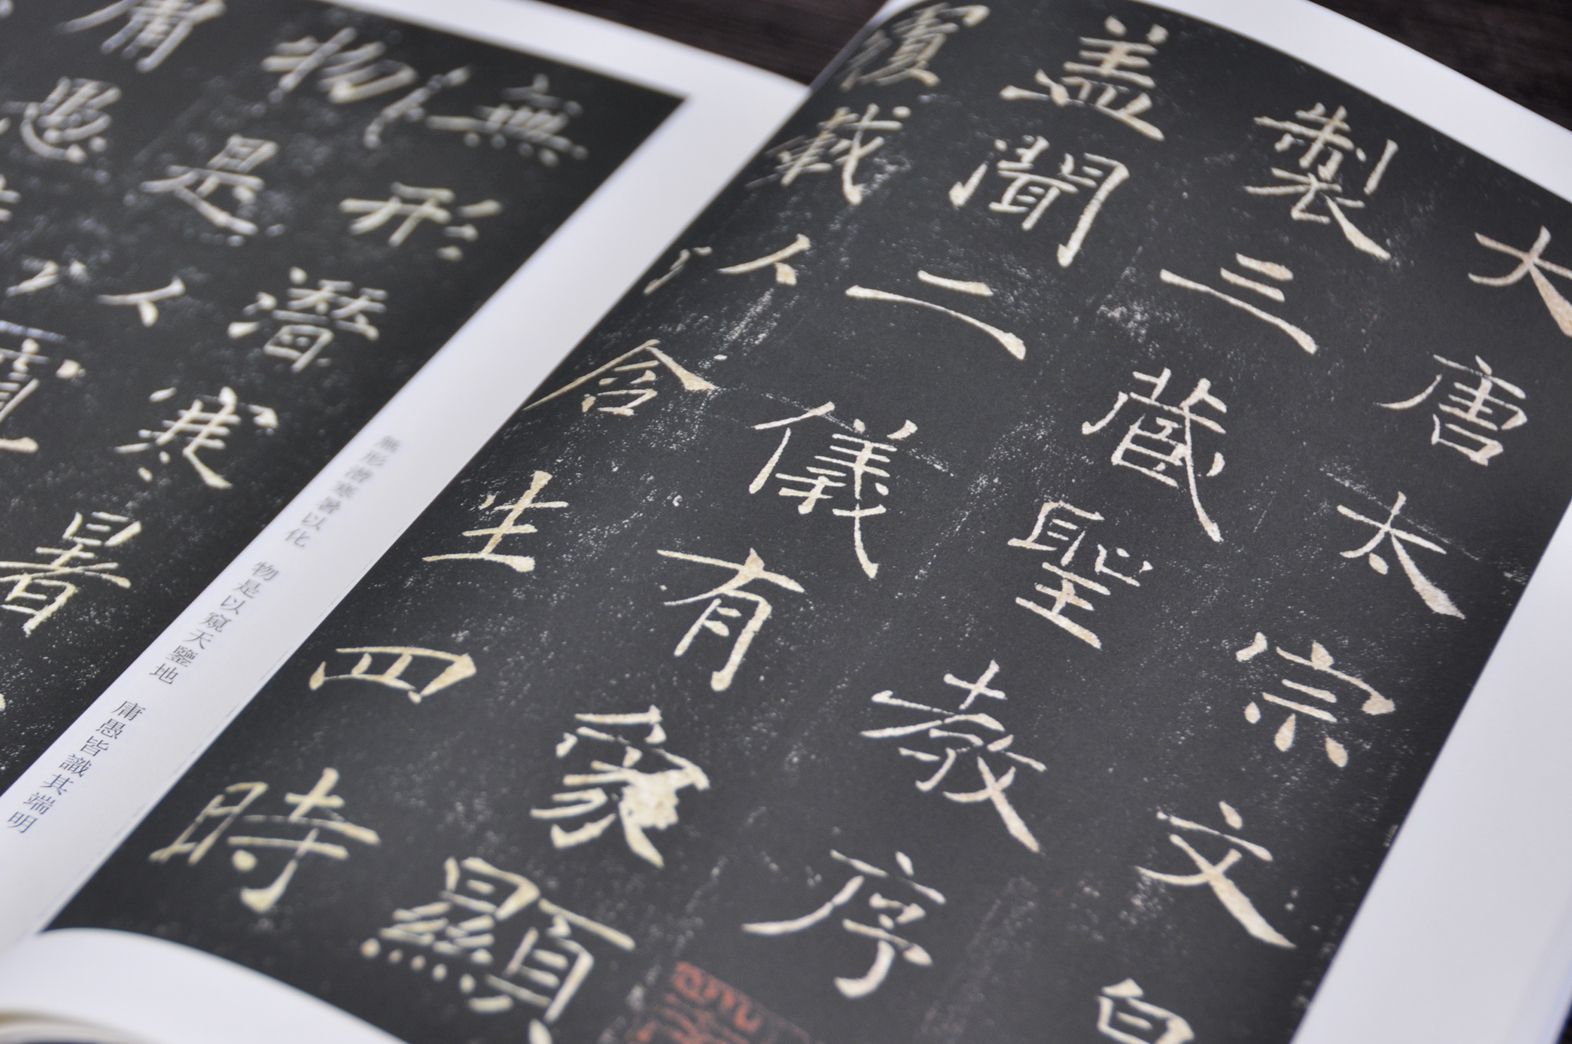 大唐太宗文
製三藏聖教序
盖聞二儀有象顯
覆載以含生四時
無形潛寒暑
物是以窺
庸愚
無形潛寒暑以化 物是以窺天鑒地 庸愚皆識其端明